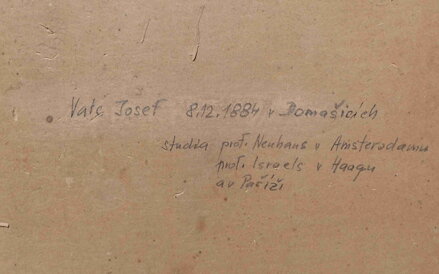 Valc Josef 8.12.1884 v Domašicích
studia prof. Neuhans v Amsterodamu
prof. Israels v Haagu
a v Paříži